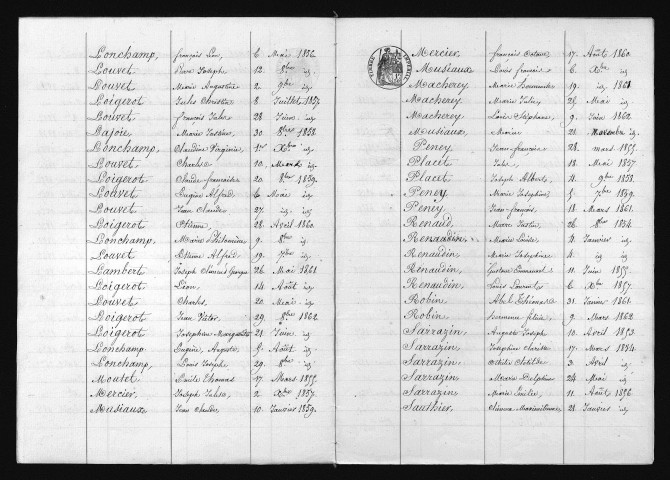 Lonchamp, François Léon, 6 Mai 1856.
Louvet Pierre Joseph 12 8bre id
Louvet Marie Augustine 2 9bre id
Loigerot Jules Christin 8 Juillet 1857
Louvet François Jules 28 Juin id
Lajoie, Marie 30 8bre 1858
Lonchamp, Claudine Virginie, 1er Xbre id
Louvet Charles 10 id
Loigerot Claude française 20 8bre 1859.
Louvet Eugène Alfred 6 Mai id
Louvet Jean Claude 27 id
Loigerot Etienne 28 Avril 1860.
Lonchamp, Marie 9 8bre id
Louvet Alfred, 19 7bre id
Lambert Joseph Georges 26 Mai 1861
Loigerot Léon, 14 Août id
Louvet Charles, 20 Mai id
Loigerot Jean Victor 29 8bre 1862
Loigerot Joséphine Marguerite 21 Juin id
Lonchamp Eugène, Auguste 5 Août id
Lonchamp, Louis Joseph 29 8bre id
Moutet Emile Thomas 17 Mars 1855.
Mercier, Joseph Jules 2 Xbre 1857.
Musiaux Jean Charles 10 Janvier 1859.
Mercier François 17 Août 1860.
Musiaux Louis François 6 Xbre id
Macherey Marie 19 id 1861
Macherey Marie Julie 25 Mai id
Macherey Louis Stéphane 9 Juin 1862
Musiaux 21 Novembre id
Peney Jean François 28 mars 1855.
Placet Jules 18 Mai 1857
Placet Joseph Albert 4 9bre 1858.
Peney Marie Joséphine 5 7bre 1859.
Peney Jean François 18 Mars 1861.
Renaud Marie Justin 26 8bre 1854.
Renaudin Marie 4 Janvier id
Renaudin Marie Joséphine 4 id id
Renaudin, Gustave Emmanuel 11 Juin 1855.
Renaudin Louis 6 Xbre 1857.
Robin Abel 31 Janvier 1861.
Robin 9 Mars 1862
Sarrazin Auguste Joseph 10 Avril 1853.
Sarrazin Joséphine Christine 17 Mars 1854.
Sarrazin 3 Avril id
Sarrazin Marie Delphine 24 Mai id
Sarrazin Marie Emilie 11 Août 1856.
Sauthier, 21 Janvier id